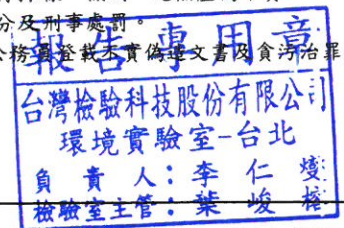 分及刑事處罰。
公務員登載不實偽造文書及貪污治罪
報告專用章
台灣檢驗科技股份有限公司
環境實驗室-台北
負責人：李仁燮
檢驗室主管：葉峻榕